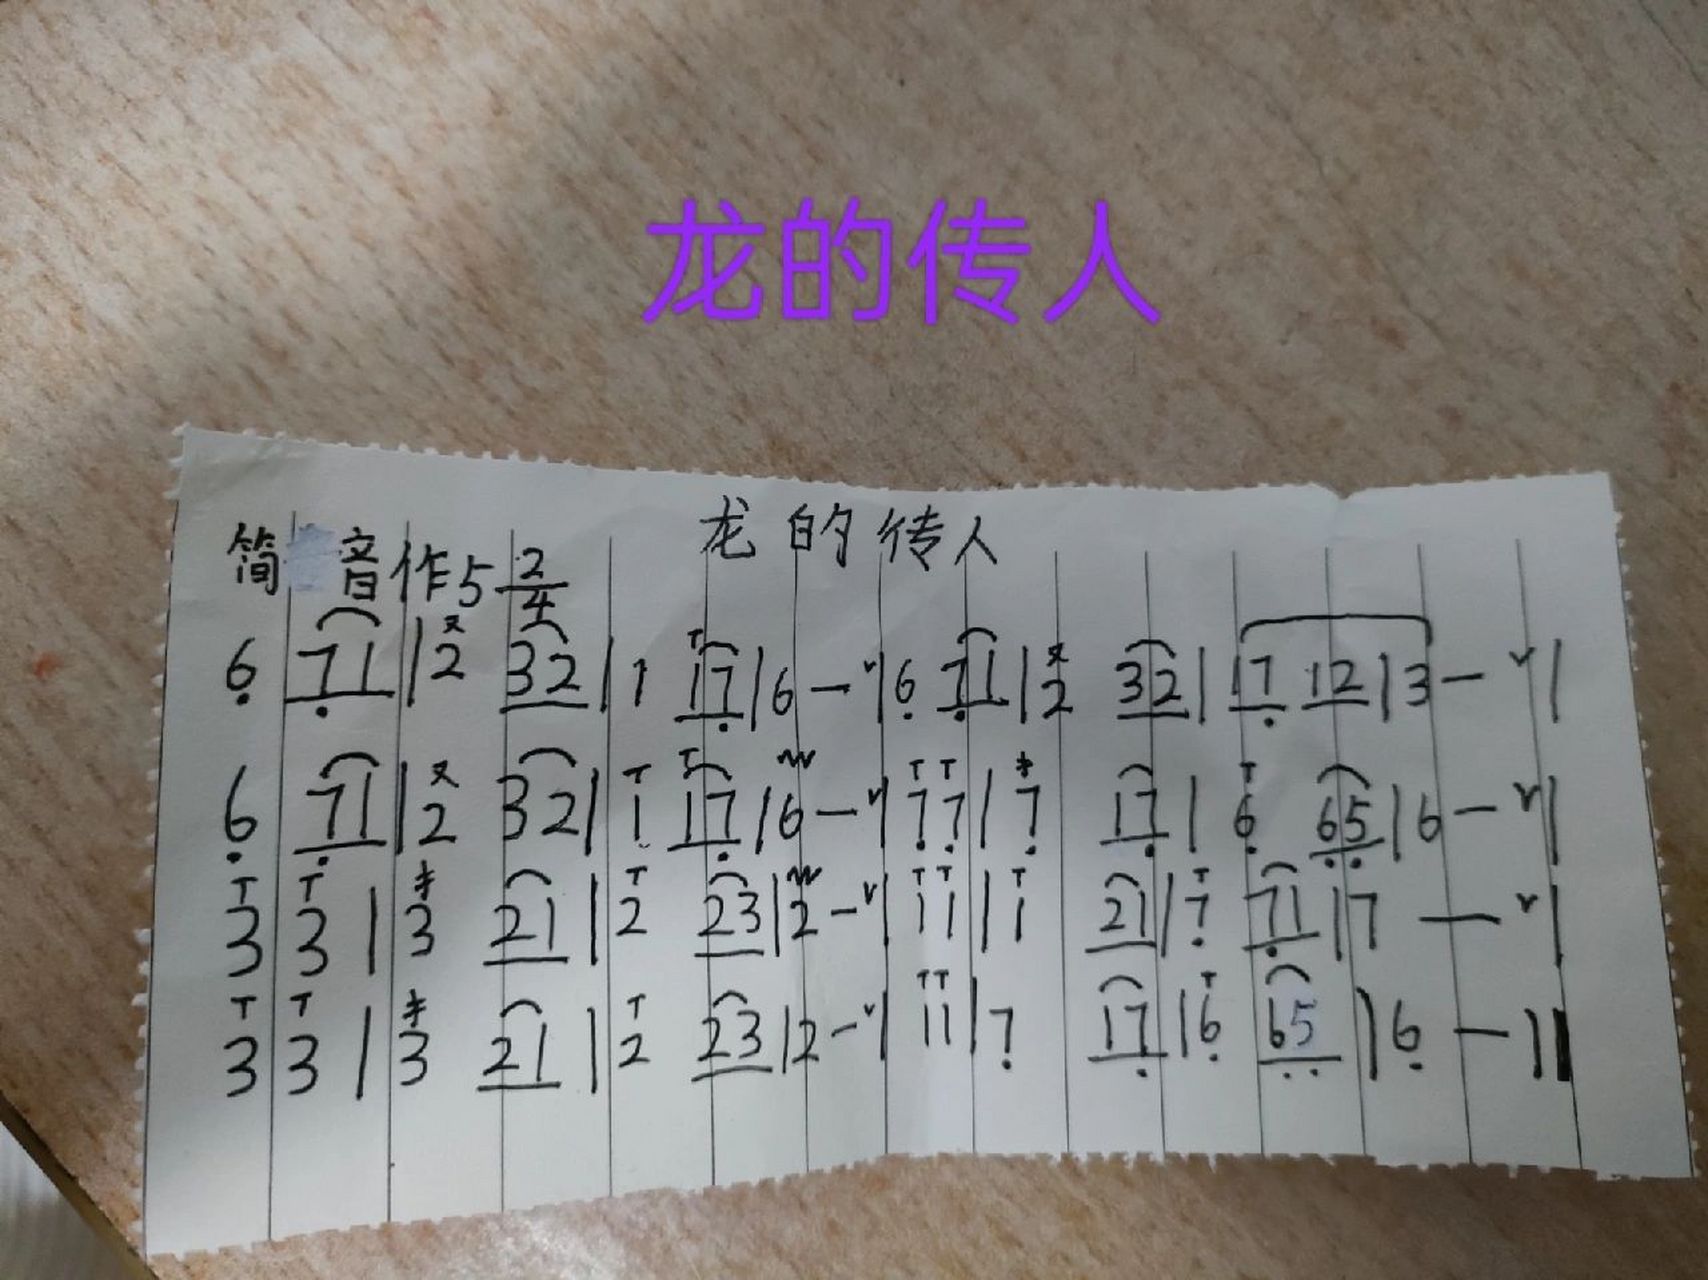 龙的传人
龙的传人
简音作5 2/4
6 71 | 2 32 | 1 17 | 6 — ∨ | 6 71 | 2 32 | 17 12 | 3 — ∨ |
6 71 | 2 32 | 1 17 | 6 — ∨ | 7 7 | 7 17 | 6 65 | 6 — ∨ |
3 3 | 3 21 | 2 23 | 2 — ∨ | 1 1 | 1 21 | 7 71 | 7 — ∨ |
3 3 | 3 21 | 2 23 | 2 — ∨ | 1 1 | 7 17 | 6 65 | 6 — ‖